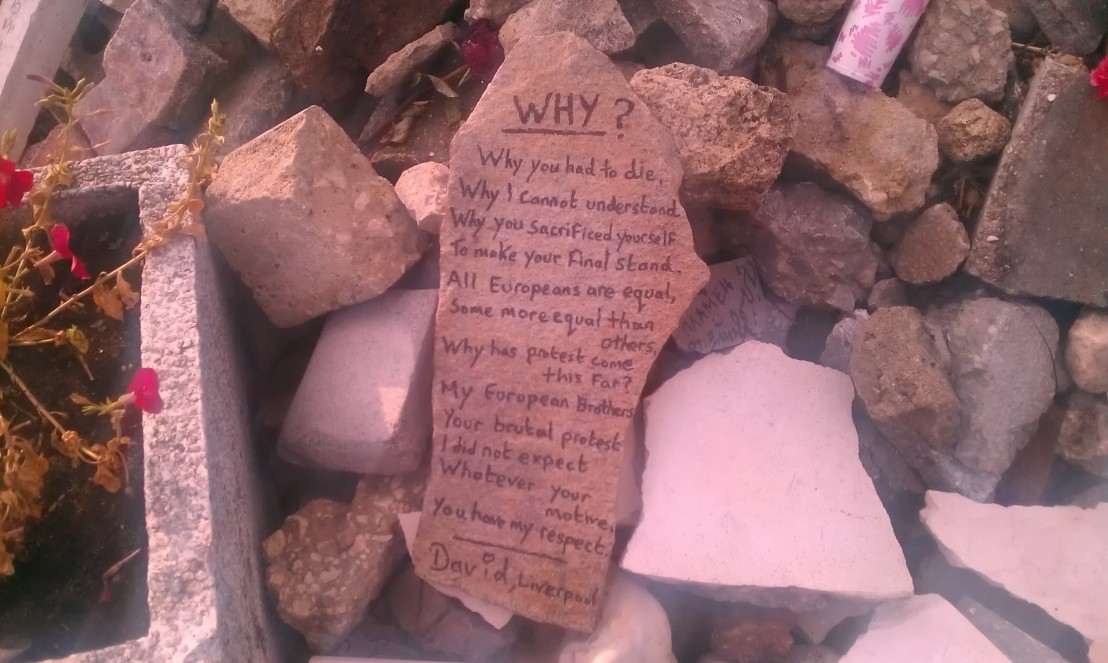 WHY?
Why you had to die,
Why I cannot understand
Why you sacrificed yourself
To make your final stand.
All Europeans are equal,
Some more equal than
others,
Why has protest come
this far?
My European Brothers
Your brutal protest
I did not expect
Whatever your
motive,
You have my respect.
David, Liverpool